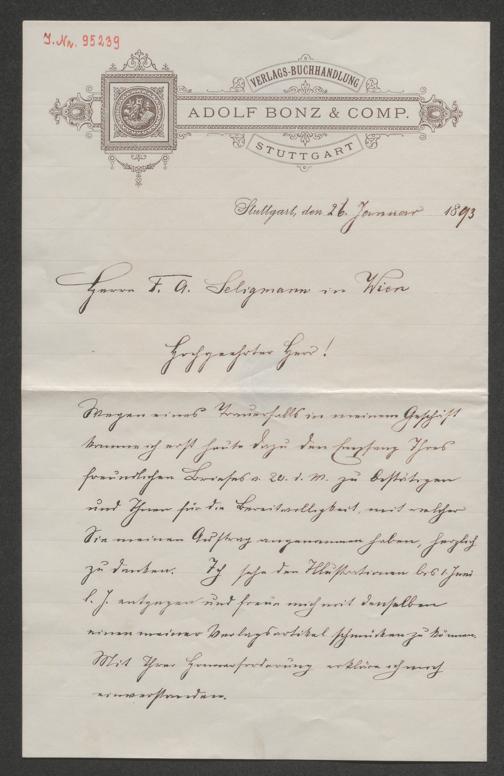 J. Nr. 95239
VERLAGS-BUCHHANDLUNG
ADOLF BONZ & COMP.
STUTTGART
Stuttgart, den 26. Januar 1893
Herrn F. A. Seligmann in Wien
Hochgeehrter Herr!
Wegen eines Trauerfalls in meinem Geschäft
komme ich erst heute dazu den Empfang Ihres
freundlichen Briefes v. 20. d. M. zu bestätigen
und Ihnen für die Bereitwilligkeit, mit welcher
Sie meinen Auftrag angenommen haben, herzlich
zu danken. Ich sehe den Illustrationen bis 1. Juni
l. J. entgegen und freue mich mit denselben
einen meiner Verlagsartikel schmücken zu können.
Mit Ihrer Honorarforderung erkläre ich mich
einverstanden.